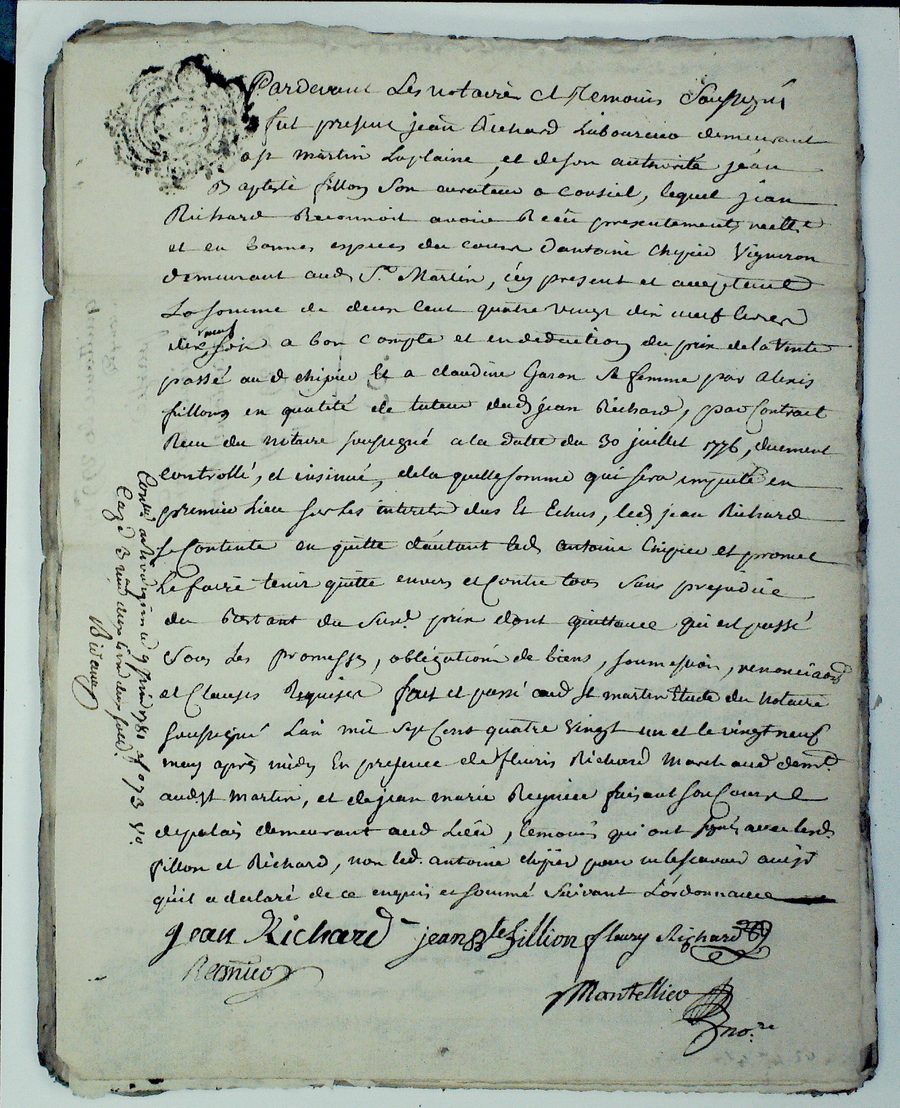 Pardevant Les notaire et temoins Soussigné
fut present jean Richard Laboureur demeurant
a st martin Laplaine, et de son authorité jean
Baptiste fillion Son curateur a conseil, lequel jean
Richard Reconnoit avoir Recû presentement, réellt
et en bonnes especes du cours d'antoine Chipier Vigneron
demeurant aud. St Martin, icy present et acceptant
La somme de deux Cent quatre vingt dix neuf livres
dix neuf sols a bon compte et en deduction du prix de la vente
passé aud chipier Et a claudine Garon Sa femme par alexis
fillion en qualité de tuteur dud jean Richard, par Contrait
Recu du notaire soussigné a la datte du 30 juillet 1776, duement
Controllé, et insinué, de la quelle somme qui sera imputé en
premier Lieu sur Les interets dus Et Echus, led jean Richard
Se Contente en quitte d'autant led antoine Chipier et promet
Le faire tenir quitte envers et contre tous sans prejudice
du Restant du Susd. prix dont quittance qui est passé
Sous Les Promesses, obligation de biens, soumission, renonciaon
et Clauses Requises fait et passé aud st martin Etude du Notaire
Soussigné L'an mil sept Cens quatre vingt un et le vingt neuf
may après midy En presence de fleuris Richard Marchand demt
aud st martin, et de jean marie faisant son Cours
de palais demeurant aud Lieu, temoins qui ont signés avec lesd
fillion et Richard, non led. antoine chipier pour ne le scavoir ainsy
qu'il a declaré de ce enquis et sommé Suivant L'ordonnance
Jean Richard jean Bte fillion fleury Richard
Montellier
nore